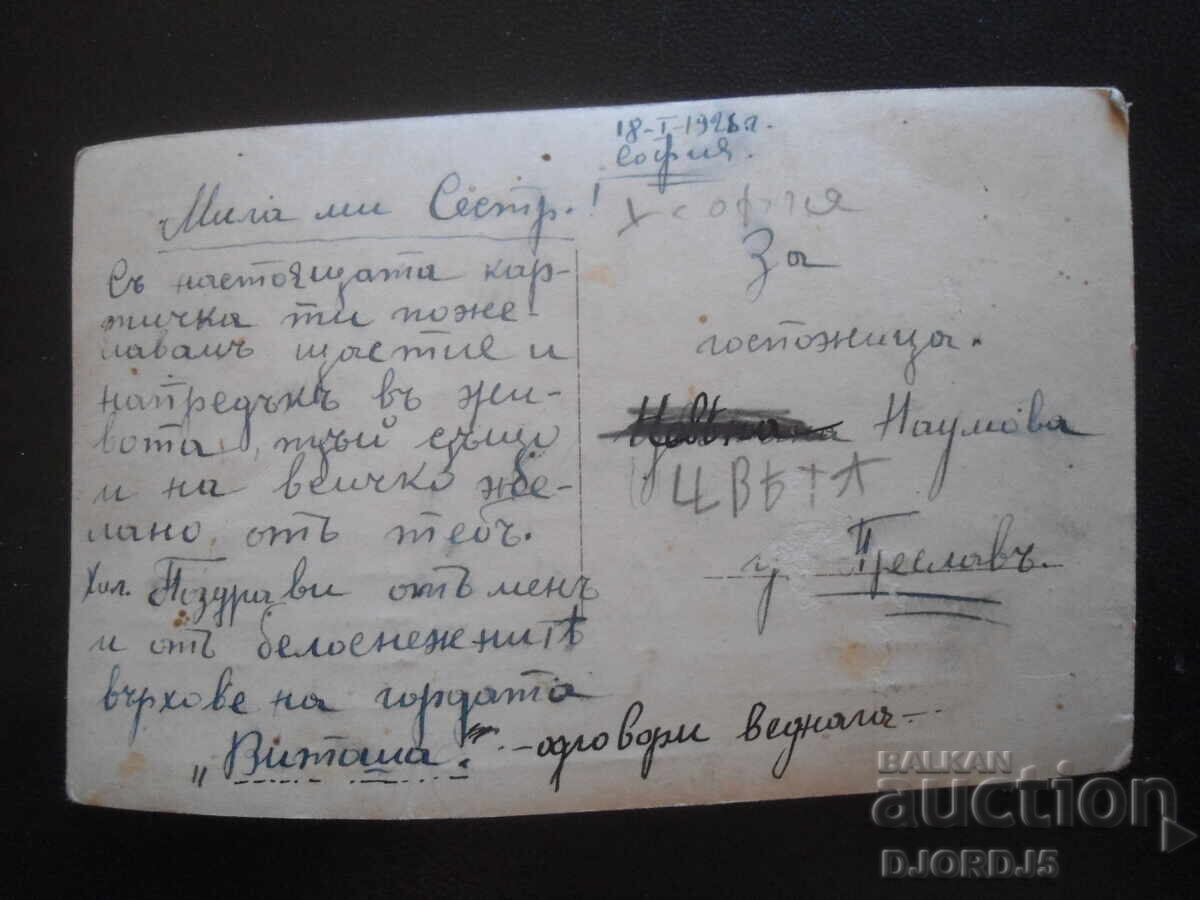 18-I-1926 г.
София.
Мила ми Сестр.!
Съ настоящата кар-
тичка ти поже-
лавамъ щастие и
напредъкъ въ жи-
вота, тъй също
и на всичко же-
лано отъ тебъ.
Хил. Поздрави отъ менъ
и отъ белоснежнитѣ
върхове на гордата
„Витоша." -одговори веднага-
За
госпожица.
Наумова
ЦВѢТА
гр. Преславъ.
BALKAN
auction
DJORDJ5